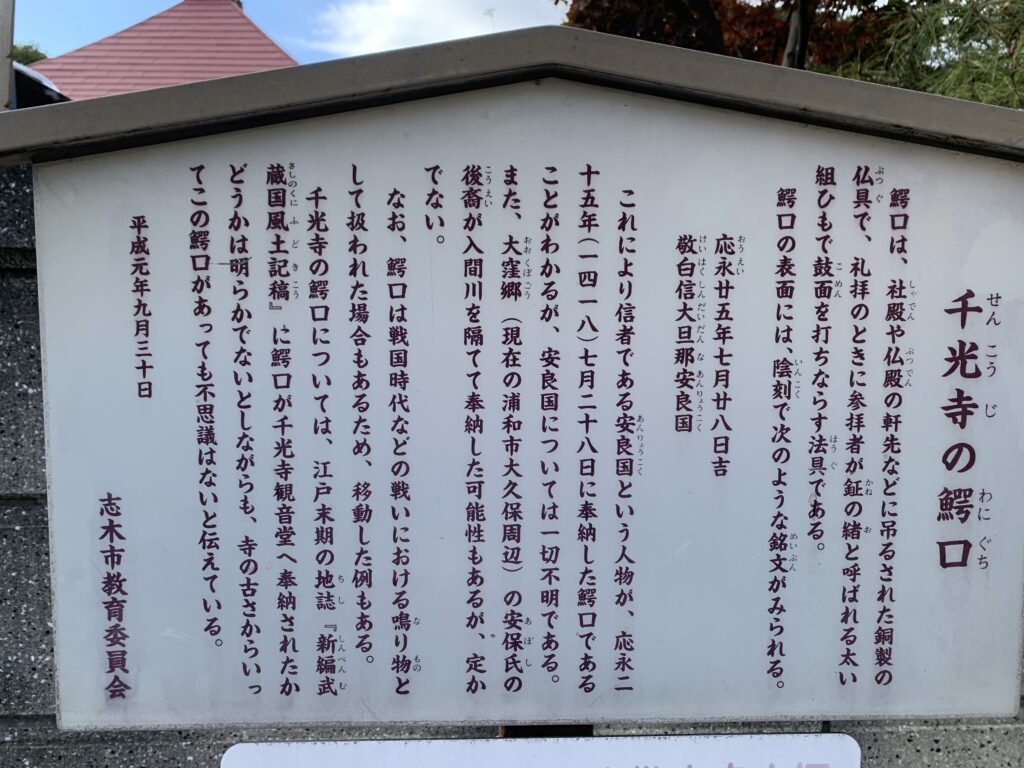 千光寺の鰐口
鰐口は、社殿や仏殿の軒先などに吊るされた銅製の
仏具で、礼拝のときに参拝者が鉦の緒と呼ばれる太い
組ひもで鼓面を打ちならす法具である。
鰐口の表面には、陰刻で次のような銘文がみられる。
応永廿五年七月廿八日吉
敬白信大旦那安良国
これにより信者である安良国という人物が、応永二
十五年（一四一八）七月二十八日に奉納した鰐口である
ことがわかるが、安良国については一切不明である。
また、大窪郷（現在の浦和市大久保周辺）の安保氏の
後裔が入間川を隔てて奉納した可能性もあるが、定か
でない。
なお、鰐口は戦国時代などの戦いにおける鳴り物と
して扱われた場合もあるため、移動した例もある。
千光寺の鰐口については、江戸末期の地誌『新編武
蔵国風土記稿』に鰐口が千光寺観音堂へ奉納されたか
どうかは明らかでないとしながらも、寺の古さからいっ
てこの鰐口があっても不思議はないと伝えている。
平成元年九月三十日
志木市教育委員会